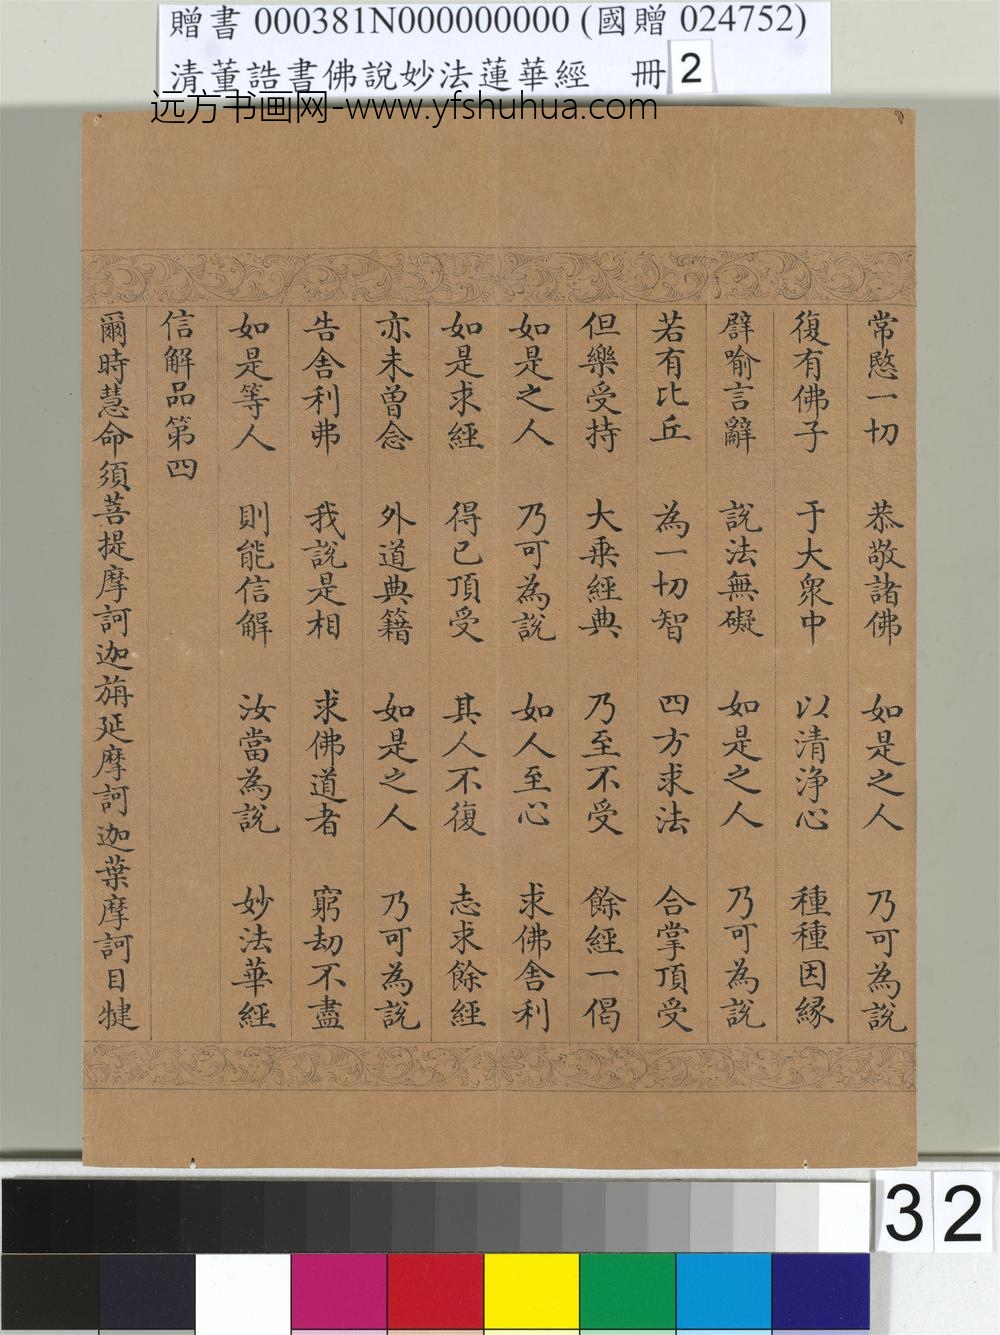 贈書 000381N000000000 (國贈 024752)
清董誥書佛說妙法蓮華經 冊 2
远方书画网-www.yfshuhua.com
常愍一切 恭敬諸佛 如是之人 乃可為說
復有佛子 于大衆中 以清淨心 種種因緣
譬喻言辭 說法無礙 如是之人 乃可為說
若有比丘 為一切智 四方求法 合掌頂受
但樂受持 大乗經典 乃至不受 餘經一偈
如是之人 乃可為說 如人至心 求佛舍利
如是求經 得已頂受 其人不復 志求餘經
亦未曾念 外道典籍 如是之人 乃可為說
告舍利弗 我說是相 求佛道者 窮劫不盡
如是等人 則能信解 汝當為說 妙法華經
信解品第四
爾時慧命須菩提摩訶迦旃延摩訶迦葉摩訶目犍
32